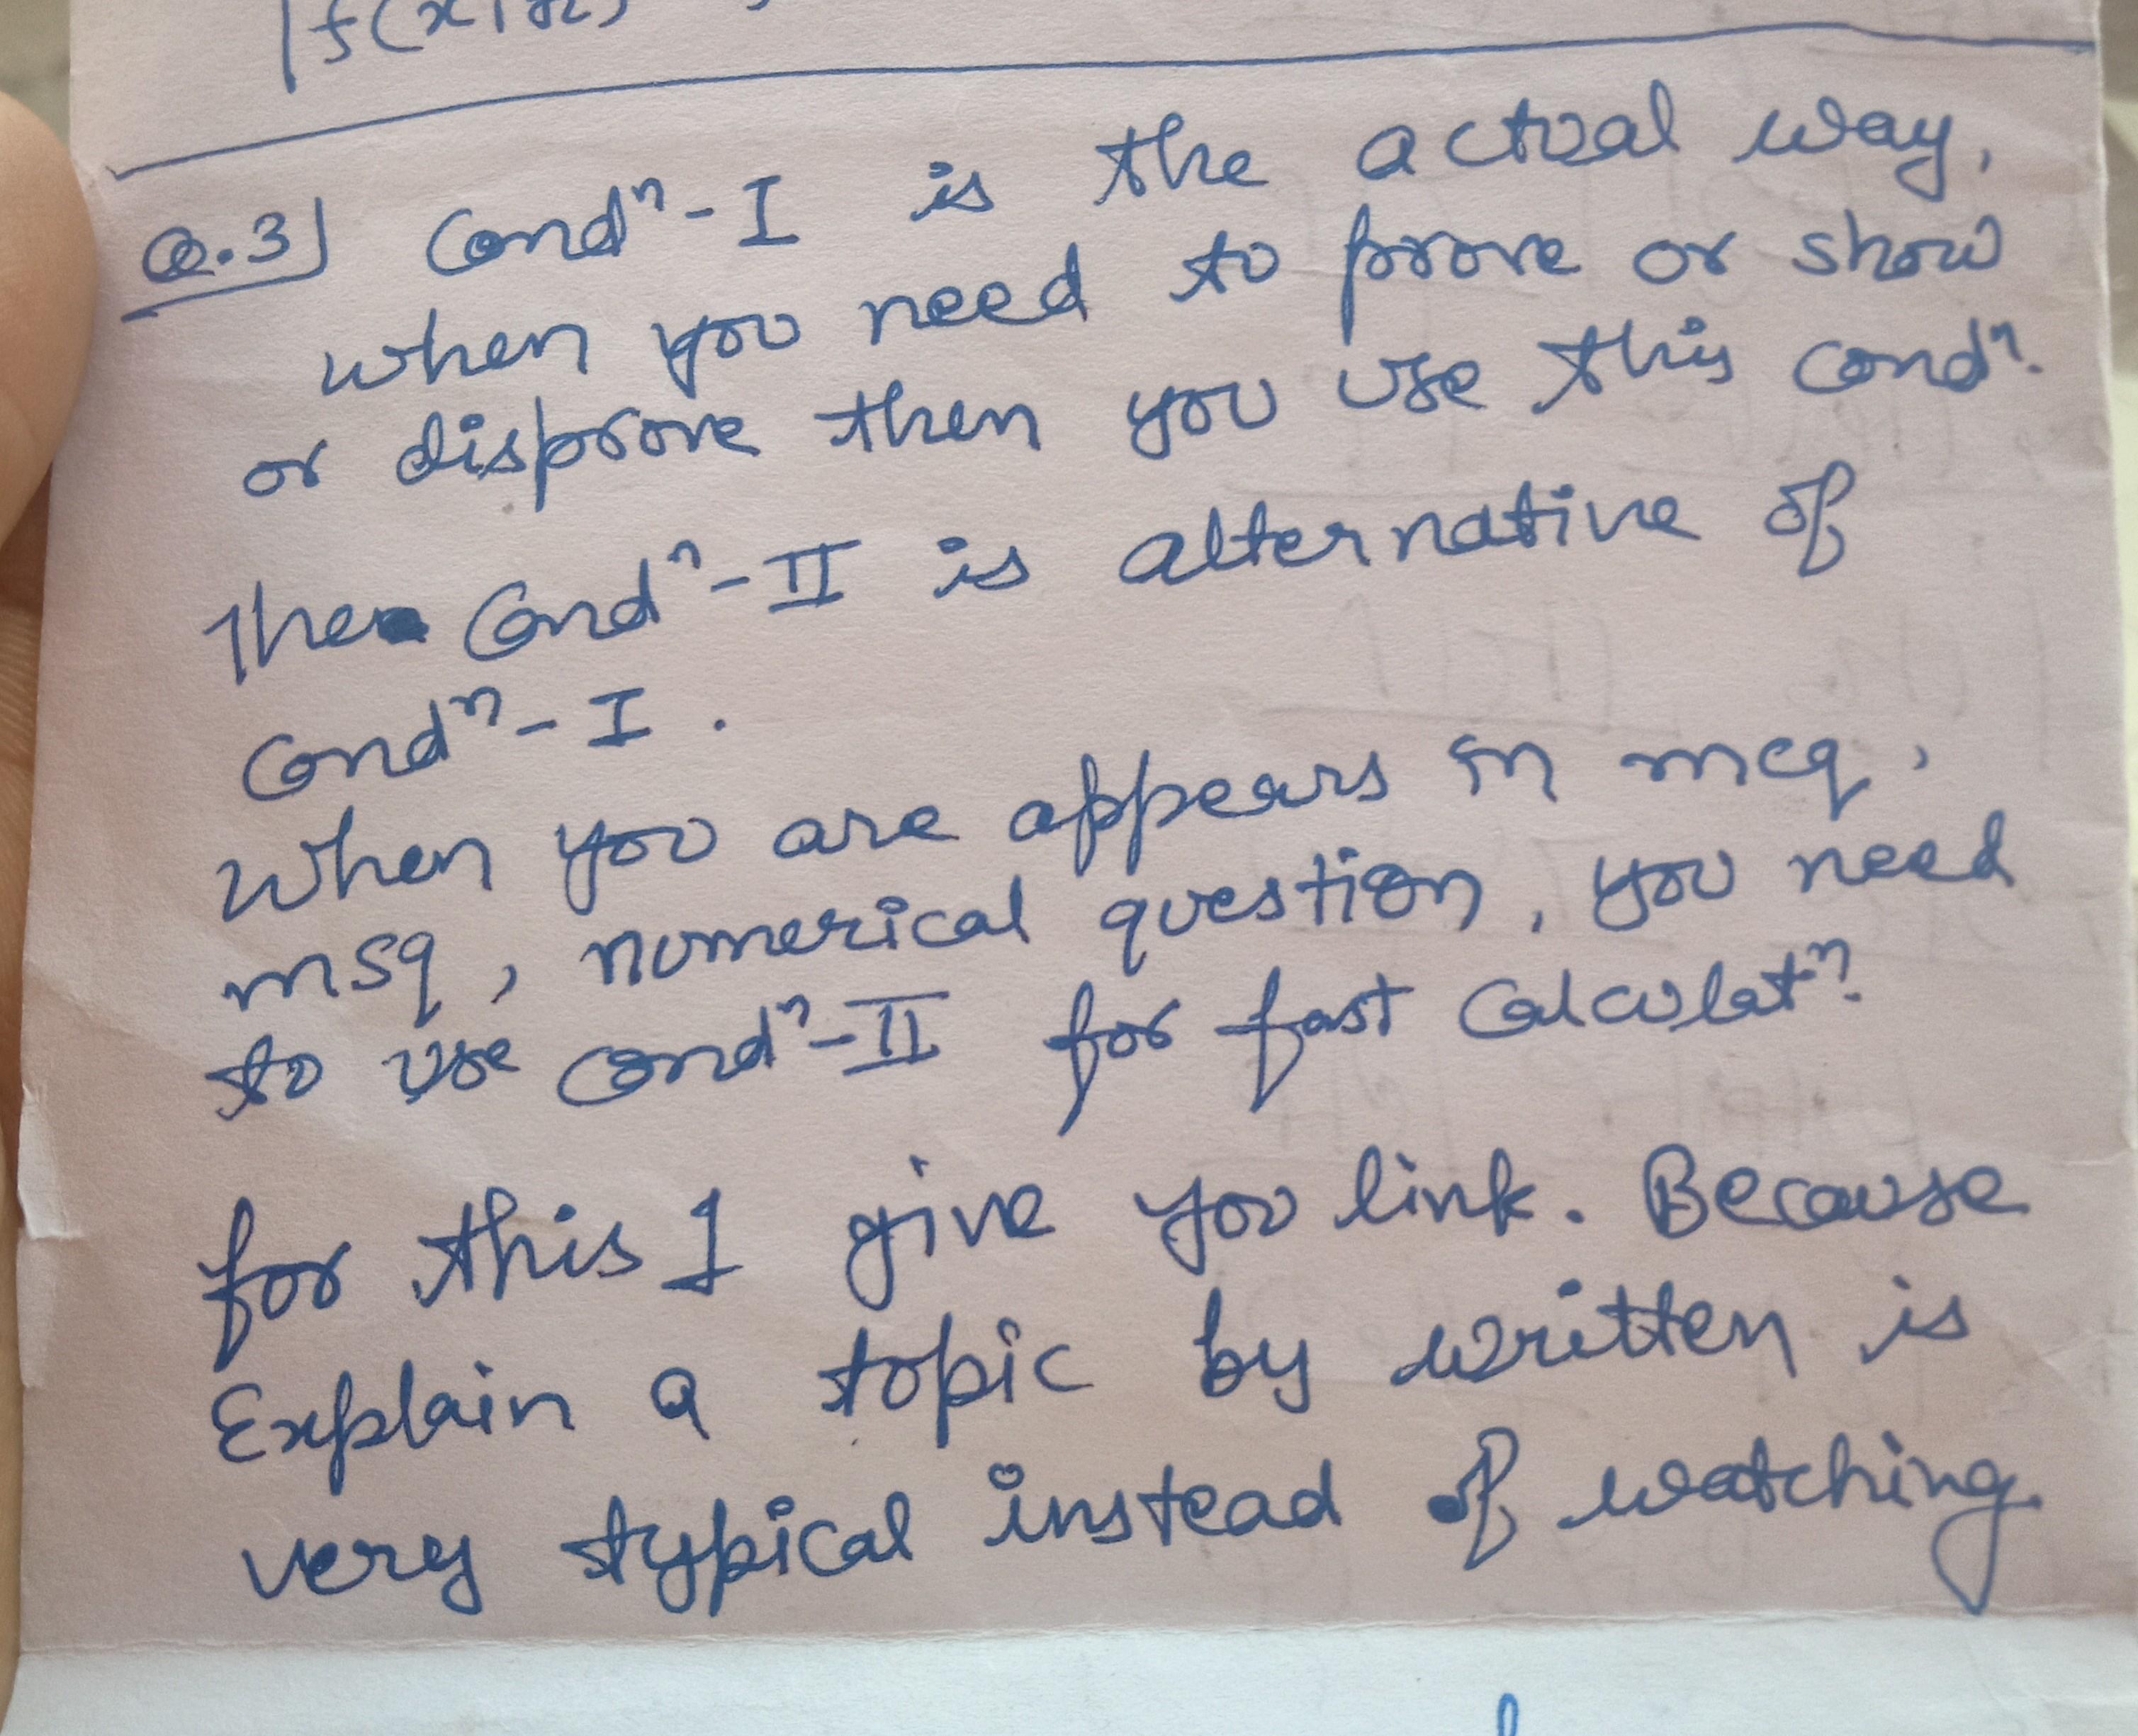 Q.3] Condⁿ-I is the actual way,
when you need to prove or show
or disprove then you use this condⁿ.
The Condⁿ-II is alternative of
Condⁿ-I.
When you are appears in mcq,
msq, numerical question, you need
to use condⁿ-II for fast Calculatⁿ.
for this I give you link. Because
Explain a topic by written is
very typical instead of watching.